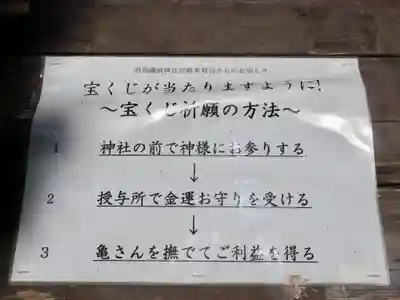 宝くじが当たりますように!
～宝くじ祈願の方法～
1 神社の前で神様にお参りする
↓
2 授与所で金運お守りを受ける
↓
3 亀さんを撫でてご利益を得る